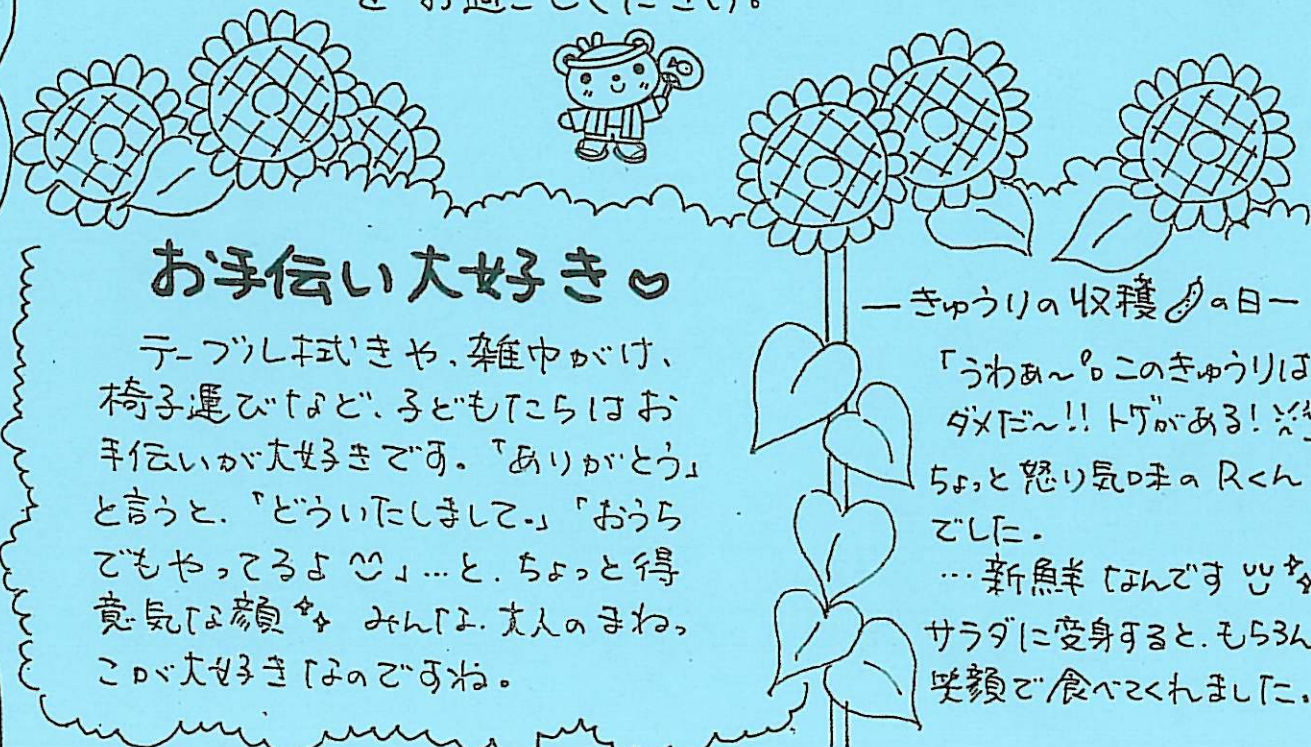 をお過ごしください。
お手伝い大好き♡
テーブル拭きや、雑巾がけ、
椅子運びなど、子どもたちはお
手伝いが大好きです。「ありがとう」
と言うと、「どういたしまして。」「おうち
でもやってるよ」…と、ちょっと得
意気な顔 みんな、大人のまねっ
こが大好きなのですね。
―きゅうりの収穫の日―
「うわぁ～。このきゅうりは
ダメだ～!!トゲがある!
ちょっと怒り気味のRくん
でした。
…新鮮なんです
サラダに変身すると、もちろん
笑顔で食べてくれました。